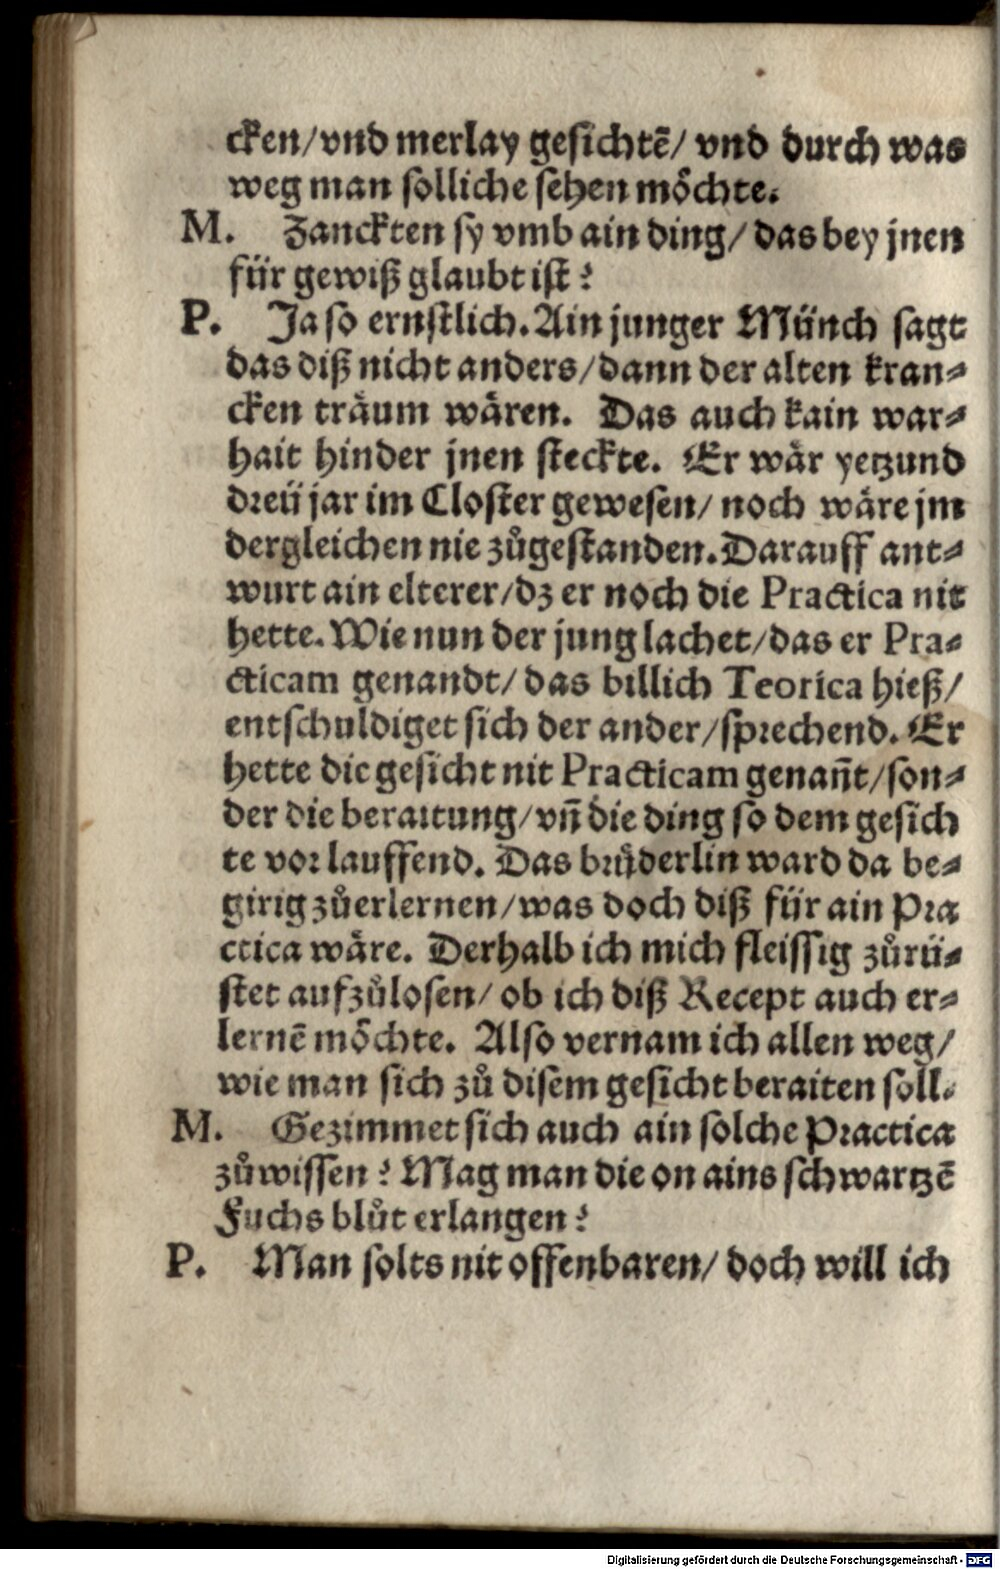 cken/vnd merlay gesichtē/ vnd durch was
weg man solliche sehen möchte.
M. Zanckten sy vmb ain ding/ das bey jnen
für gewiß glaubt ist?
P. Ja so ernstlich. Ain junger Münch sagt
das diß nicht anders/dann der alten kran⸗
cken träum wären. Das auch kain war⸗
hait hinder jnen steckte. Er wär yetzund
dreü jar im Closter gewesen/ noch wäre jm
dergleichen nie zůgestanden. Darauff ant⸗
wurt ain elterer/dz er noch die Practica nit
hette. Wie nun der jung lachet/das er Pra⸗
cticam genandt/ das billich Teorica hieß/
entschuldiget sich der ander/sprechend. Er
hette die gesicht nit Practicam genañt/son⸗
der die beraitung/vñ die ding so dem gesich
te vor lauffend. Das brůderlin ward da be⸗
girig zůerlernen/was doch diß für ain Pra
ctica wäre. Derhalb ich mich fleissig zůrü⸗
stet aufzůlosen/ ob ich diß Recept auch er⸗
lernē möchte. Also vernam ich allen weg/
wie man sich zů disem gesicht beraiten soll.
M. Gezimmet sich auch ain solche Practica
zůwissen? Mag man die on ains schwartzē
Fuchs blůt erlangen?
P. Man solts nit offenbaren/ doch will ich
Digitalisierung gefördert durch die Deutsche Forschungsgemeinschaft - DFG